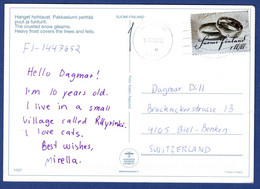 Hanget hohtavat. Pakkaslumi peittää
puut ja tunturit.
The crusted snow gleams.
Heavy frost covers the trees and fells.
SUOMI-FINLAND
FI-1447652
Hello Dagmar!
I'm 10 years old.
I live in a small
village called Röllyrinki.
I love cats.
Best wishes,
Mirella.
Suomi Finland
Dagmar Dill
Bruckackerstrasse 13
4105 Biel-Benken
SWITZERLAND